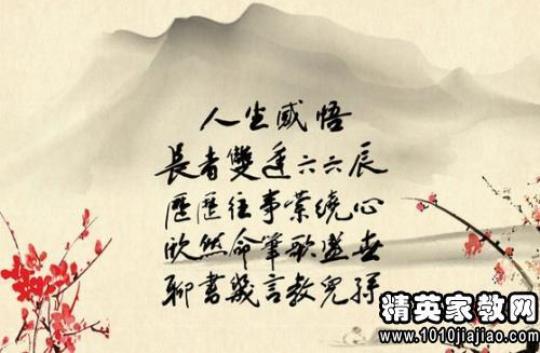 人生感悟
長者雙逢六六辰
歷歷往事縈繞心
欣然命筆歌盛世
聊書幾言教兒孫
精英家教网
www.1010jiajiao.com